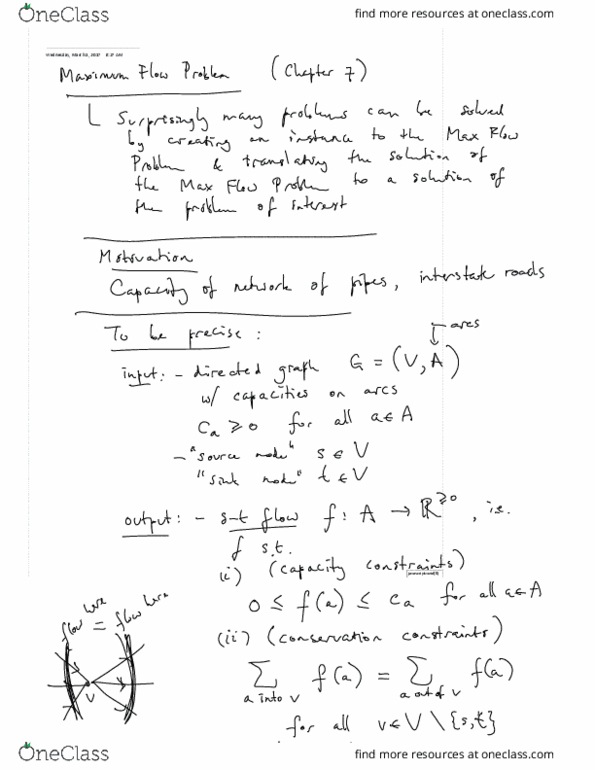 OneClass
find more resources at oneclass.com
Maximum Flow Problem (Chapter 7)
Surprisingly many problems can be solved
by creating an instance to the Max Flow
Problem & translating the solution of
the Max Flow Problem to a solution of
the problem of interest
Motivation
Capacity of network of pipes, interstate roads
To be precise:
arcs
input: - directed graph G = (V, A)
w/ capacities on arcs
Ca ⩾ 0 for all a ∈ A
- "source node" s ∈ V
"sink node" t ∈ V
output: - s-t flow f : A → ℝ^⩾0, i.e.
f s.t.
(i) (capacity constraints)
0 ≤ f(a) ≤ Ca for all a ∈ A
flow here = flow here
(ii) (conservation constraints)
∑ f(a) = ∑ f(a)
a into v a out of v
v
for all v ∈ V \ {s,t}
OneClass
find more resources at oneclass.com